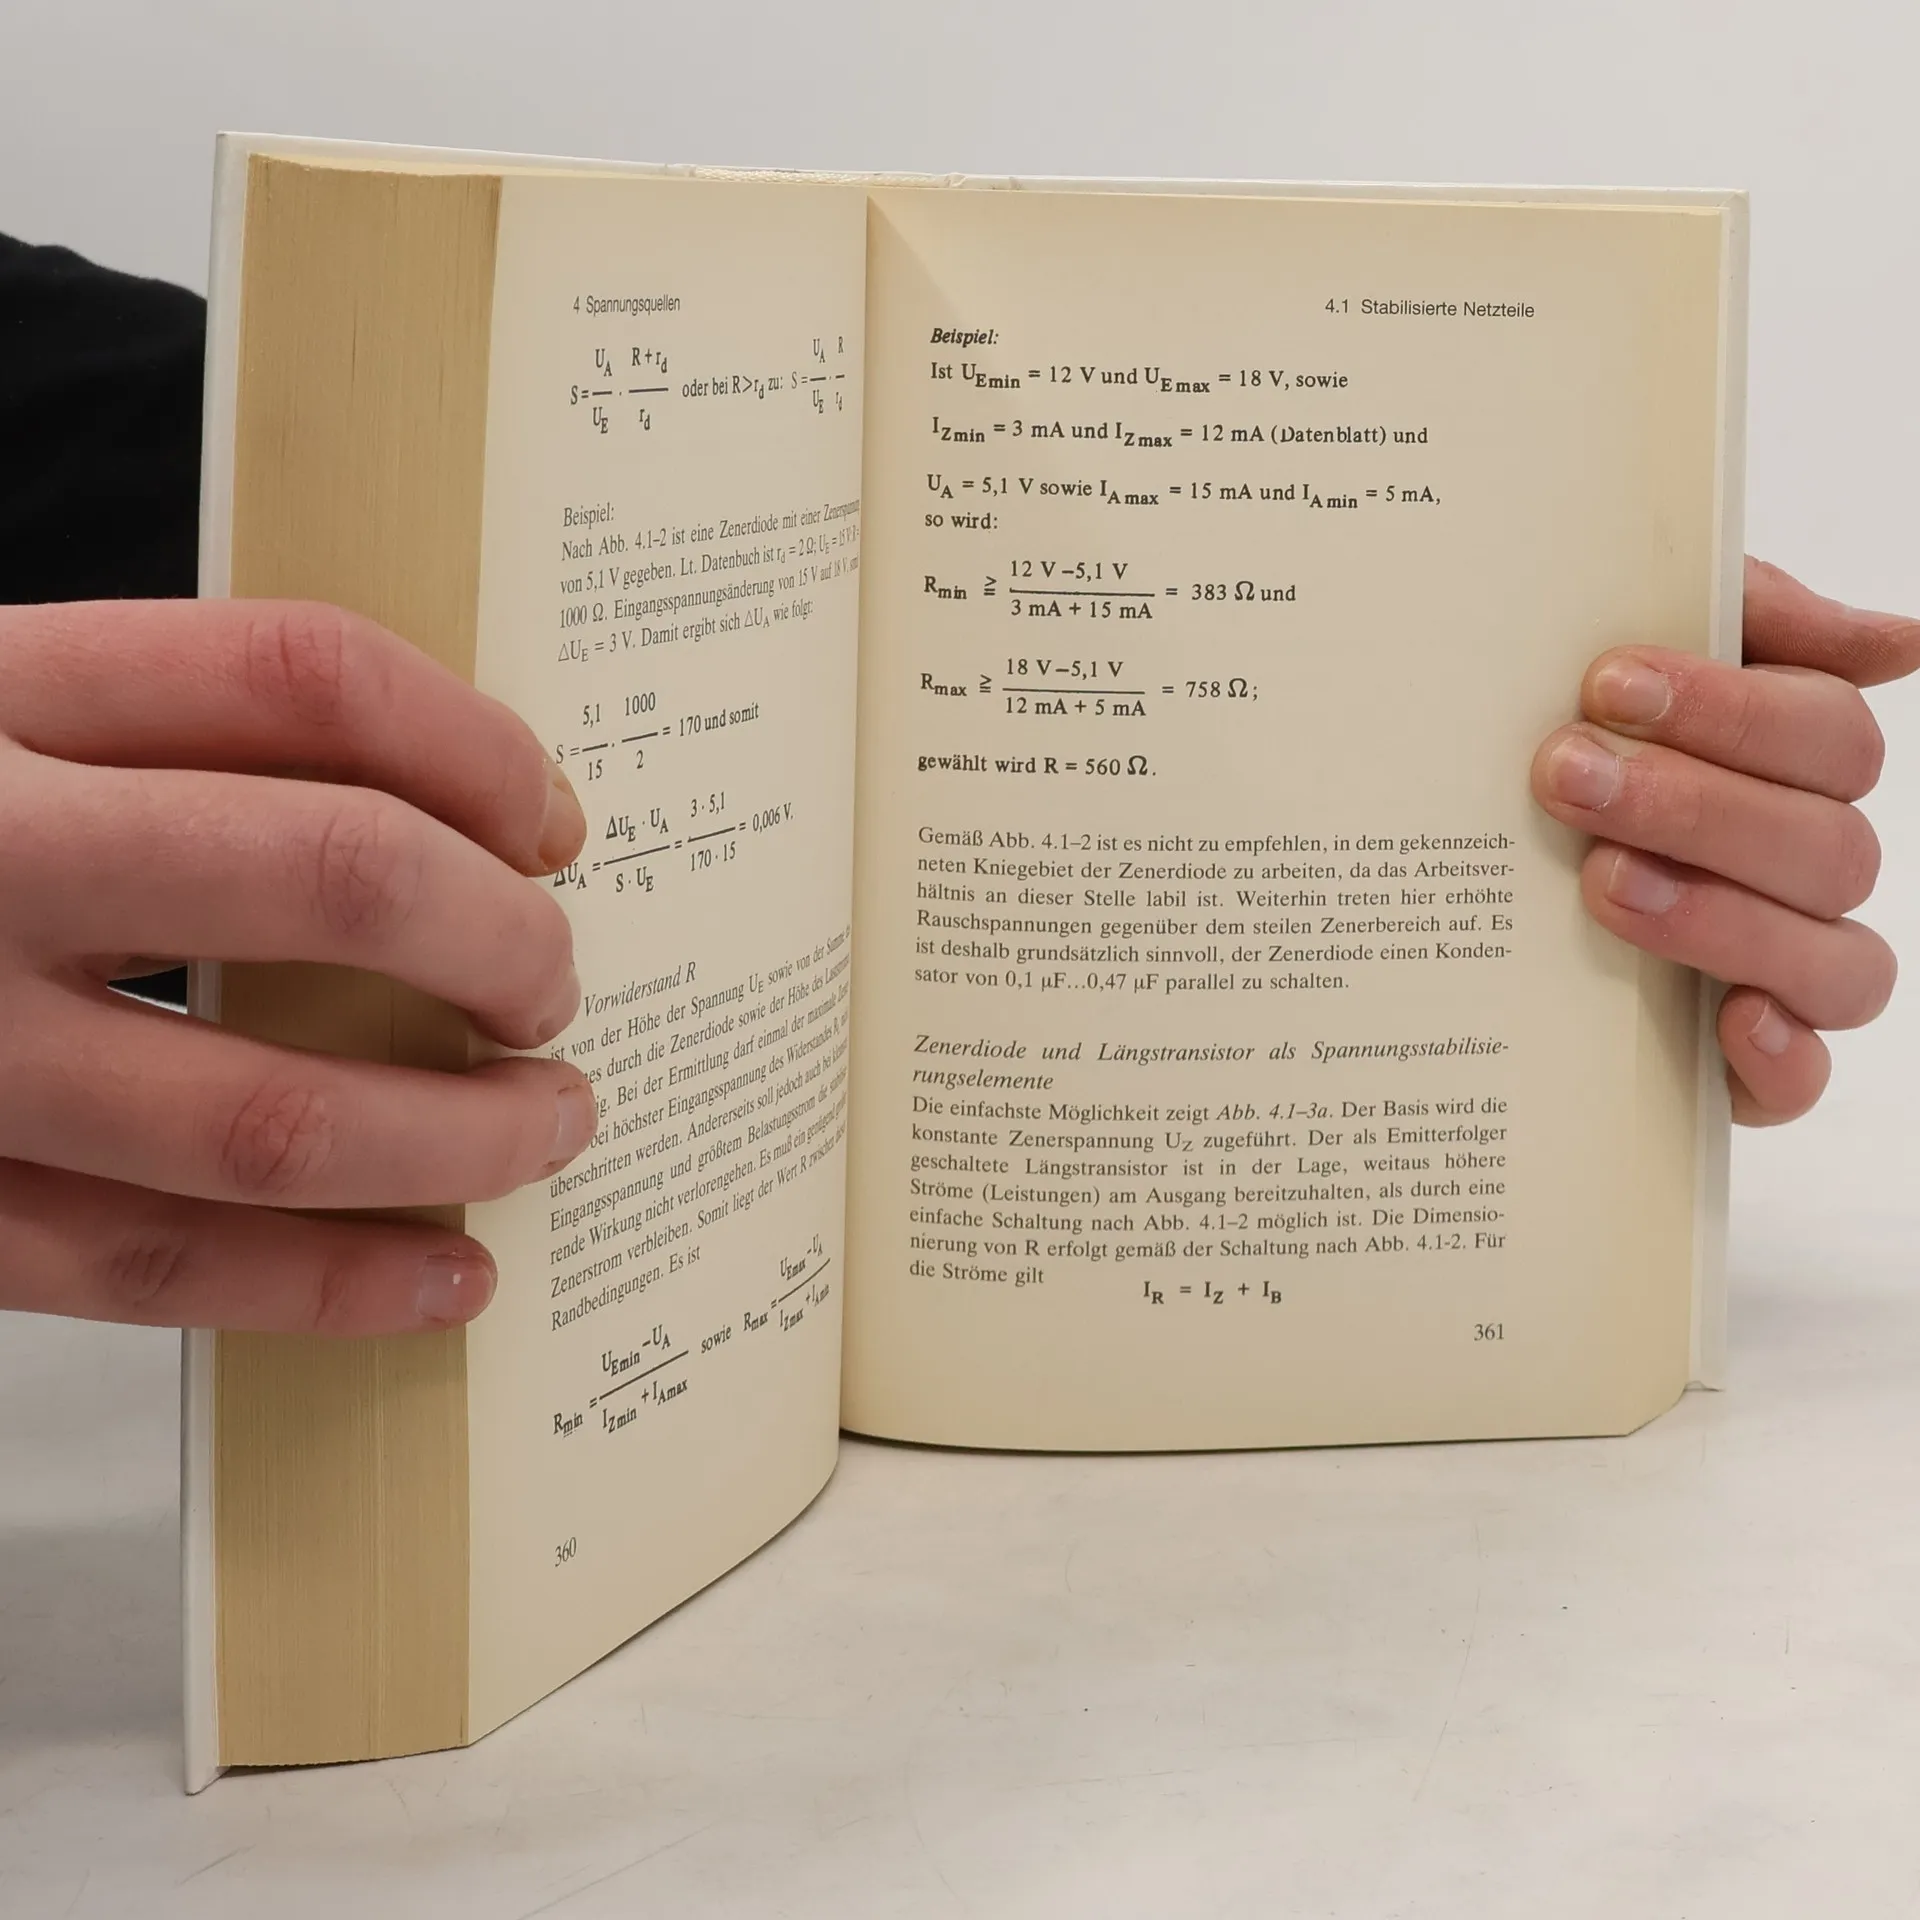 4 Spannungsquellen
S = U_A/U_E · (R + r_d)/r_d oder bei R > r_d zu: S = U_A/U_E · R/r_d
Beispiel:
Nach Abb. 4.1–2 ist eine Zenerdiode mit einer
von 5,1 V gegeben. Lt. Datenbuch ist r_d = 2 Ω; U_E = 15 V; R =
1000 Ω. Eingangsspannungsänderung von 15 V auf 18 V,
ΔU_E = 3 V. Damit ergibt sich ΔU_A wie folgt:
S = 5,1/15 · 1000/2 = 170 und somit
ΔU_A = (ΔU_E · U_A)/(S · U_E) = (3 · 5,1)/(170 · 15) = 0,006 V.
Vorwiderstand R
ist von der Höhe der Spannung U_E sowie von der Summe
es durch die Zenerdiode sowie der Höhe des
ig. Bei der Ermittlung darf einmal der maximale
bei höchster Eingangsspannung des Widerstandes R,
überschritten werden. Andererseits soll jedoch auch bei
Eingangsspannung und größtem Belastungsstrom die
rende Wirkung nicht verlorengehen. Es muß ein genügend
Zenerstrom verbleiben. Somit liegt der Wert R zwischen
Randbedingungen. Es ist
R_min = (U_Emin − U_A)/(I_Zmin + I_Amax) sowie R_max = (U_Emax − U_A)/(I_Zmax + I_Amin)
360
4.1 Stabilisierte Netzteile
Beispiel:
Ist U_Emin = 12 V und U_Emax = 18 V, sowie
I_Zmin = 3 mA und I_Zmax = 12 mA (Datenblatt) und
U_A = 5,1 V sowie I_Amax = 15 mA und I_Amin = 5 mA,
so wird:
R_min ≧ (12 V – 5,1 V)/(3 mA + 15 mA) = 383 Ω und
R_max ≧ (18 V – 5,1 V)/(12 mA + 5 mA) = 758 Ω;
gewählt wird R = 560 Ω.
Gemäß Abb. 4.1–2 ist es nicht zu empfehlen, in dem gekennzeich-
neten Kniegebiet der Zenerdiode zu arbeiten, da das Arbeitsver-
hältnis an dieser Stelle labil ist. Weiterhin treten hier erhöhte
Rauschspannungen gegenüber dem steilen Zenerbereich auf. Es
ist deshalb grundsätzlich sinnvoll, der Zenerdiode einen Konden-
sator von 0,1 µF...0,47 µF parallel zu schalten.
Zenerdiode und Längstransistor als Spannungsstabilisie-
rungselemente
Die einfachste Möglichkeit zeigt Abb. 4.1–3a. Der Basis wird die
konstante Zenerspannung U_Z zugeführt. Der als Emitterfolger
geschaltete Längstransistor ist in der Lage, weitaus höhere
Ströme (Leistungen) am Ausgang bereitzuhalten, als durch eine
einfache Schaltung nach Abb. 4.1–2 möglich ist. Die Dimensio-
nierung von R erfolgt gemäß der Schaltung nach Abb. 4.1-2. Für
die Ströme gilt
I_R = I_Z + I_B
361